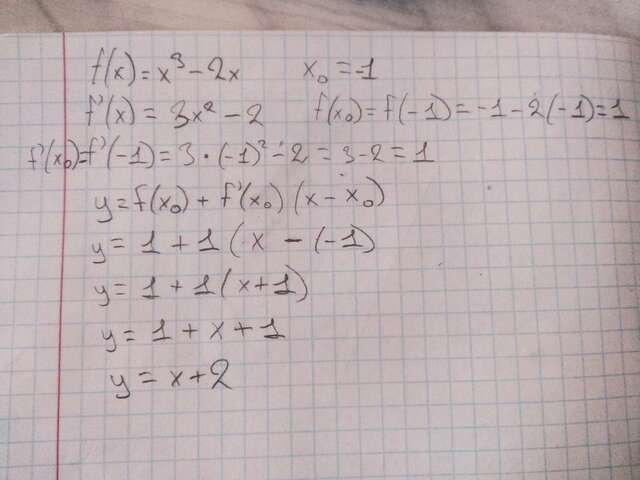 f(x) = x³ - 2x x₀ = -1
f'(x) = 3x² - 2 f(x₀) = f(-1) = -1 - 2(-1) = 1
f'(x₀) = f'(-1) = 3 · (-1)² - 2 = 3 - 2 = 1
y = f(x₀) + f'(x₀) (x - x₀)
y = 1 + 1 (x - (-1)
y = 1 + 1 (x + 1)
y = 1 + x + 1
y = x + 2